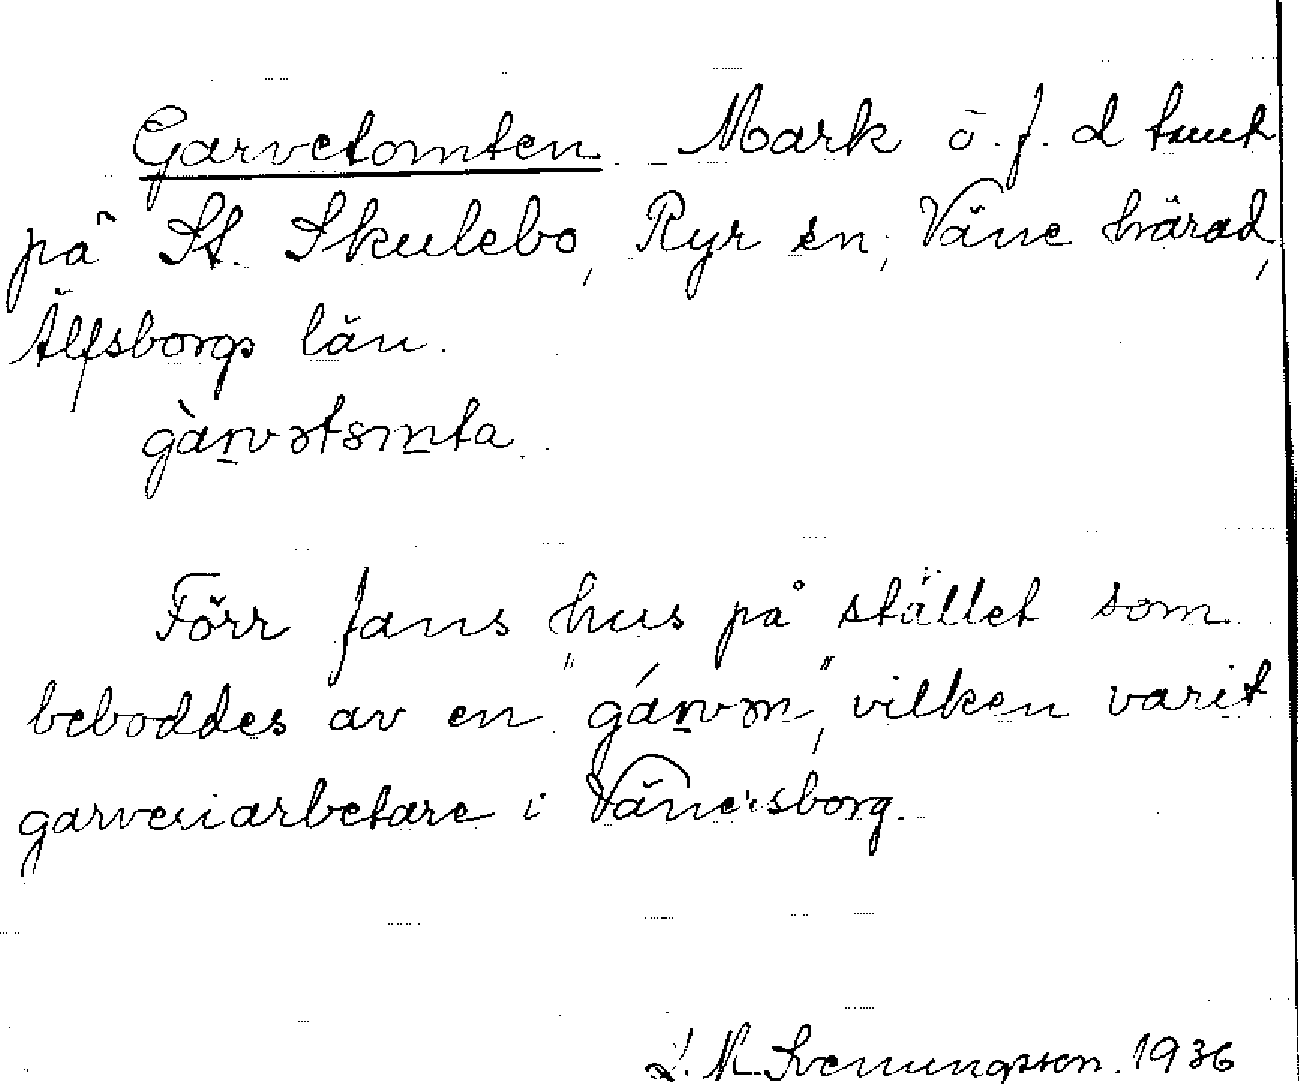 Garvetomten Mark o. f. d tomt
på St. Skulebo, Ryr sn, Väne härad,
Älfsborgs län.
Förr fans hus på stället som
beboddes av en "gárvən", vilken varit
garveriarbetare i Vänersborg.
Svenungsson. 1936